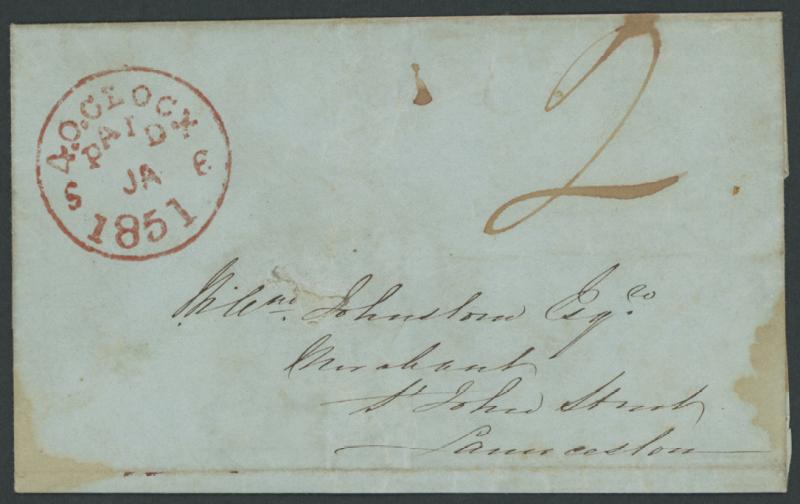 4.O.CLOCK
PAID
JA
S E
1851
2
Johnston Esqre
Merchant
St John Street
Launceston